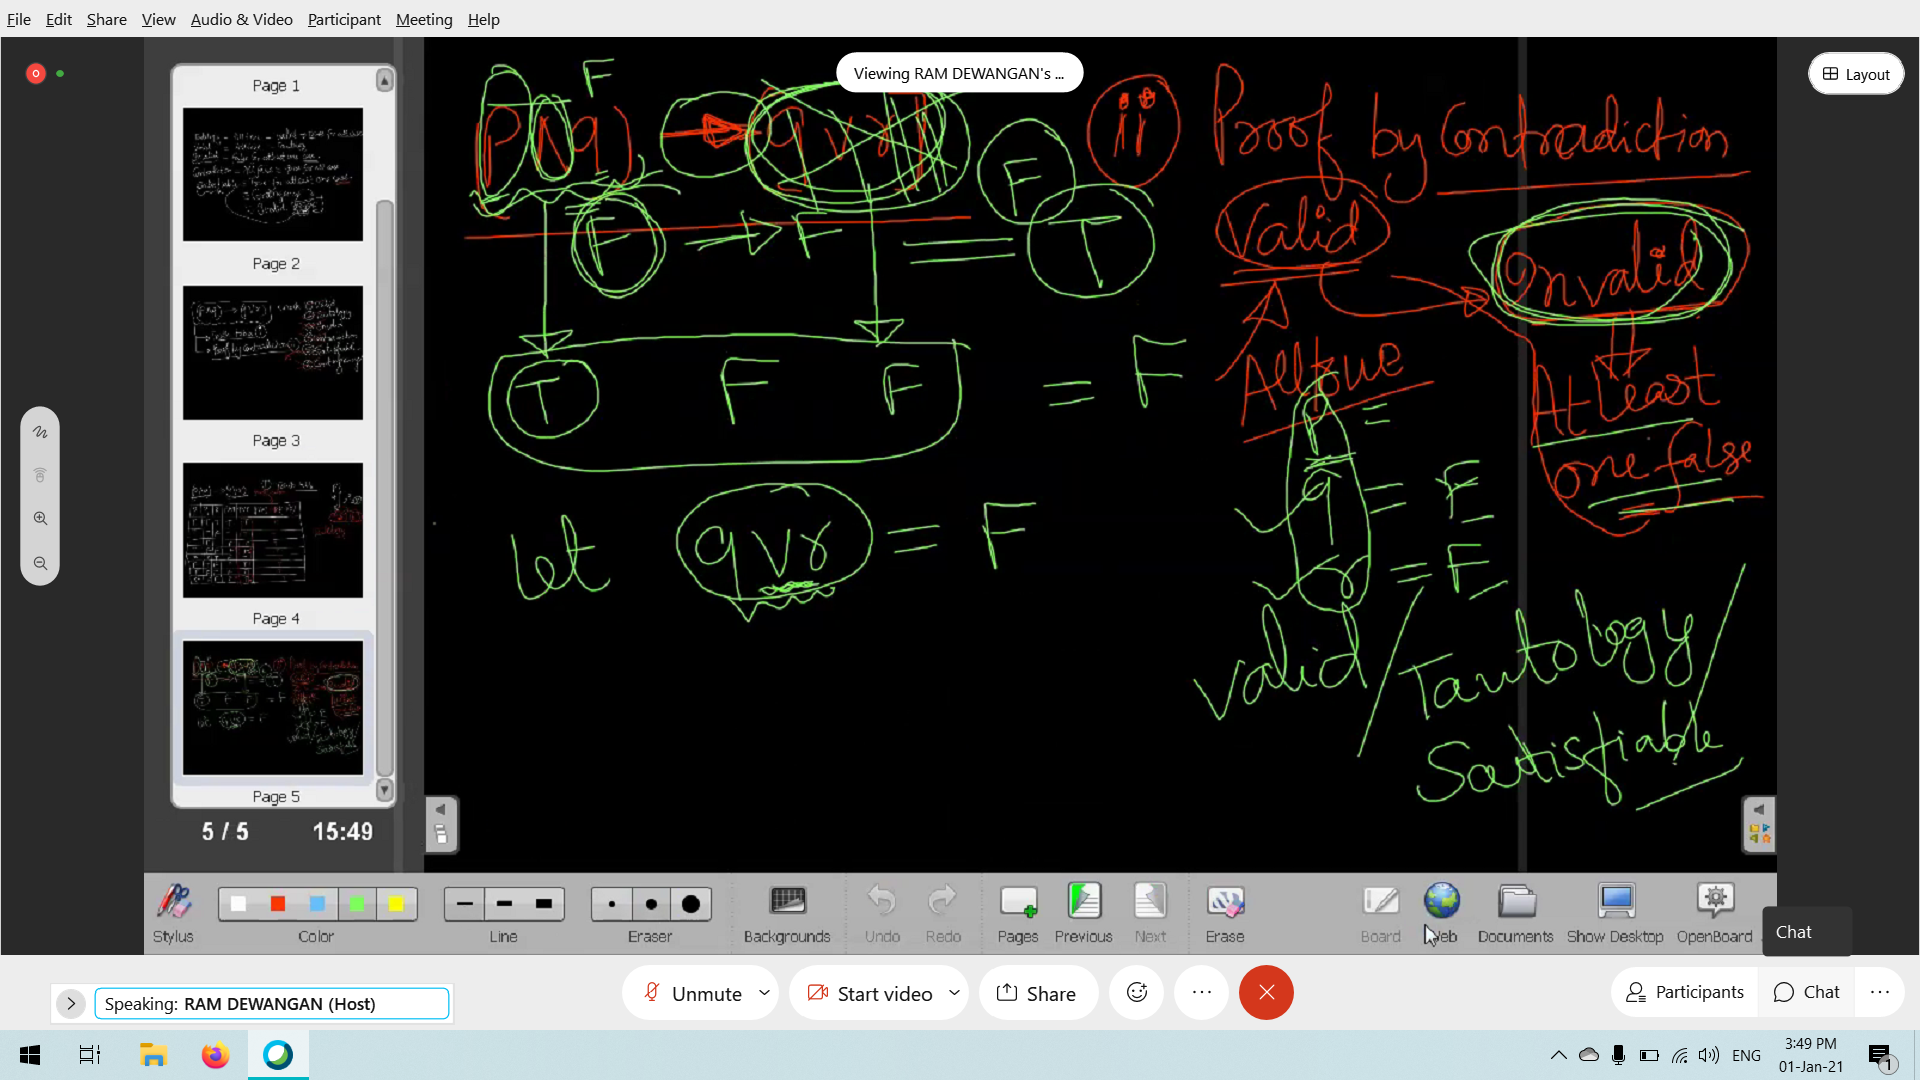 File Edit Share View Audio & Video Participant Meeting Help
Viewing RAM DEWANGAN's ...
Layout
Page 1
Page 2
Page 3
Page 4
Page 5
5 / 5 15:49
F
(p∧q) → (q∨r)
F → F = T
F
ii
Proof by Contradiction
Valid
Invalid
T F F = F
All true
At least
one false
p =
q = F
r = F
let q∨r = F
valid/Tautology/
Satisfiable
Stylus Color Line Eraser Backgrounds Undo Redo Pages Previous Next Erase Board Web Documents Show Desktop OpenBoard
Chat
Speaking: RAM DEWANGAN (Host)
Unmute Start video Share ... Participants Chat ...
ENG
3:49 PM
01-Jan-21
1